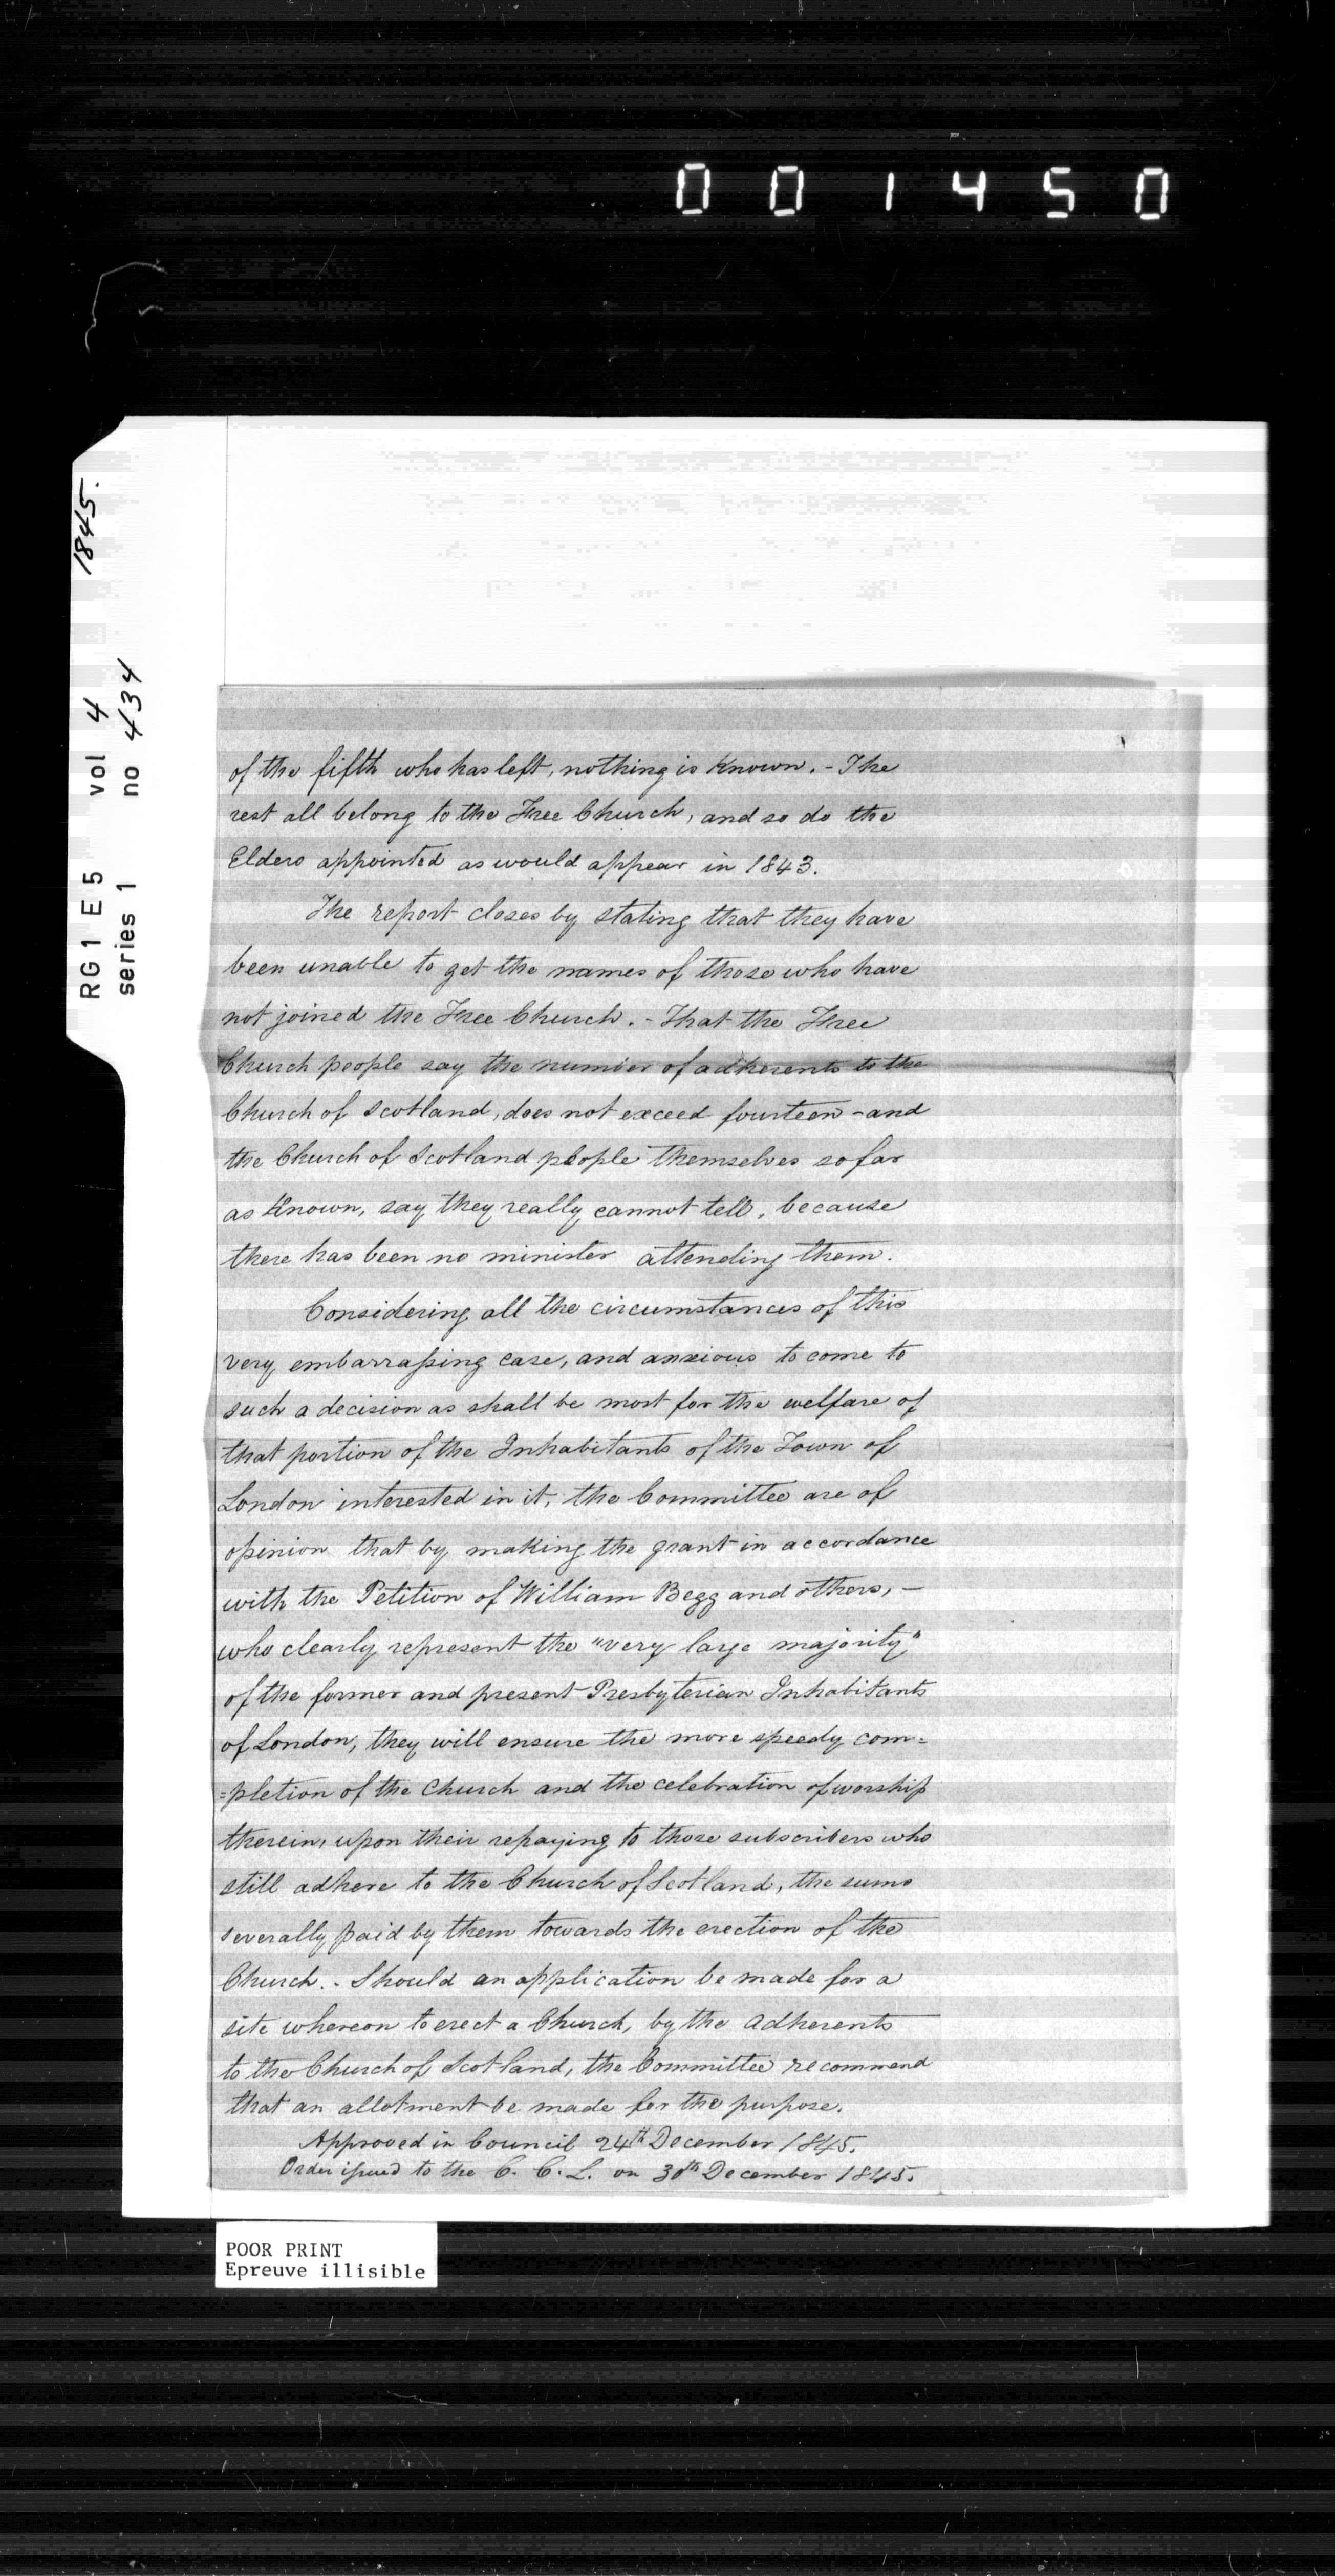 001450
1845.
RG1 E5 vol 4
series 1 no 434
of the fifth who has left, nothing is Known. - The
rest all belong to the Free Church, and so do the
Elders appointed as would appear in 1843.
The report closes by stating that they have
been unable to get the names of those who have
not joined the Free Church. - That the Free
Church people say the number of adherents to the
Church of Scotland, does not exceed fourteen - and
the Church of Scotland people themselves so far
as Known, say they really cannot tell, because
there has been no minister attending them.
Considering all the circumstances of this
very embarrassing case, and anxious to come to
such a decision as shall be most for the welfare of
that portion of the Inhabitants of the Town of
London interested in it, the Committee are of
opinion that by making the grant in accordance
with the Petition of William Begg and others, -
who clearly represent the "very large majority"
of the former and present Presbyterian Inhabitants
of London, they will ensure the more speedy com=
=pletion of the Church and the celebration of worship
therein, upon their repaying to those subscribers who
still adhere to the Church of Scotland, the sums
severally paid by them towards the erection of the
Church. - Should an application be made for a
site whereon to erect a Church, by the adherents
to the Church of Scotland, the Committee recommend
that an allotment be made for the purpose.
Approved in Council 24th December 1845.
Order issued to the C. C. L. on 30th December 1845.
POOR PRINT
Epreuve illisible